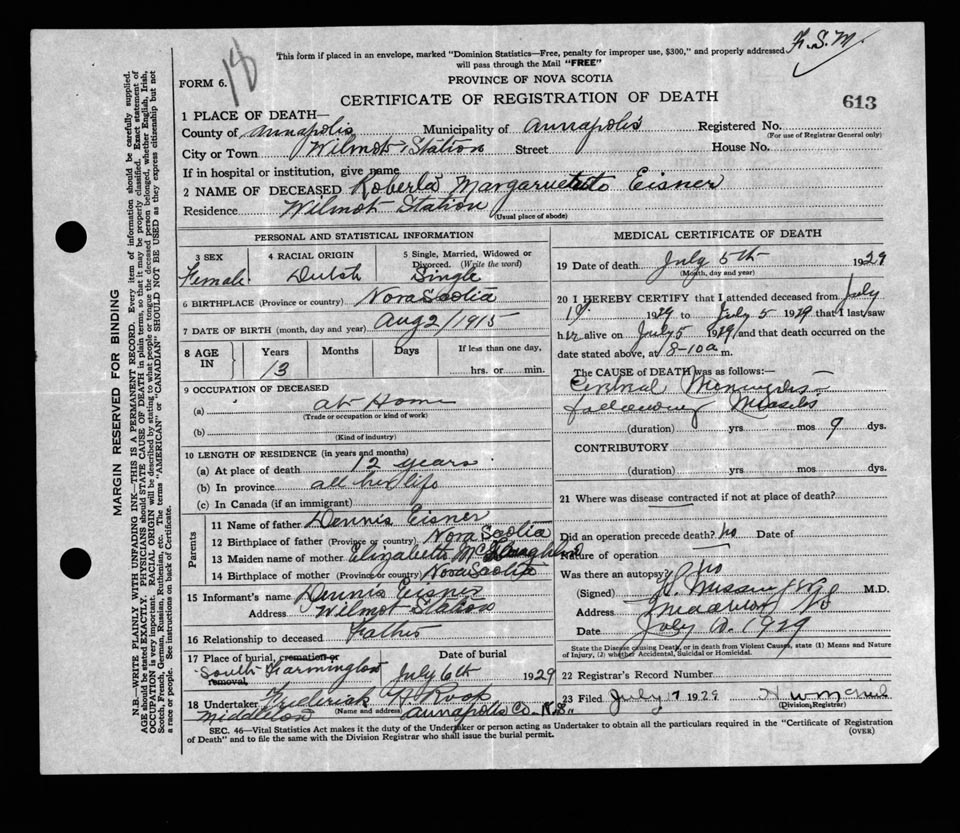 This form if placed in an envelope, marked "Dominion Statistics—Free, penalty for improper use, $300," and properly addressed
will pass through the Mail "FREE"
K.S.M.
18
FORM 6.
PROVINCE OF NOVA SCOTIA
CERTIFICATE OF REGISTRATION OF DEATH
613
1 PLACE OF DEATH—
County of Annapolis Municipality of Annapolis Registered No.
(For use of Registrar General only)
City or Town Wilmot Station Street House No.
If in hospital or institution, give name
2 NAME OF DECEASED Roberta Eisner
Residence Wilmot Station
(Usual place of abode)
PERSONAL AND STATISTICAL INFORMATION
3 SEX 4 RACIAL ORIGIN 5 Single, Married, Widowed or
Divorced. (Write the word)
Female Dutch Single
6 BIRTHPLACE (Province or country) Nova Scotia
7 DATE OF BIRTH (month, day and year) Aug 2/1915
8 AGE IN Years Months Days If less than one day,
13 hrs. or min.
9 OCCUPATION OF DECEASED
(a) at Home
(Trade or occupation or kind of work)
(b)
(Kind of industry)
10 LENGTH OF RESIDENCE (in years and months)
(a) At place of death 12 years
(b) In province all her life
(c) In Canada (if an immigrant)
Parents
11 Name of father Dennis Eisner
12 Birthplace of father (Province or country) Nova Scotia
13 Maiden name of mother Elizabeth
14 Birthplace of mother (Province or country) Nova Scotia
15 Informant's name Dennis Eisner
Address Wilmot Station
16 Relationship to deceased Father
17 Place of burial, cremation or removal Date of burial
South Farmington July 6th 1929
18 Undertaker Frederick A. Roop
Middleton (Name and address) Annapolis Co. N.S.
MEDICAL CERTIFICATE OF DEATH
19 Date of death July 5th 1929
(Month, day and year)
20 I HEREBY CERTIFY that I attended deceased from July
1929 to July 5 1929 that I last saw
her alive on July 5 1929 and that death occurred on the
date stated above, at 8-10 a m.
The CAUSE of DEATH was as follows:
following Measles
(duration) yrs mos 9 dys.
CONTRIBUTORY
(duration) yrs. mos. dys.
21 Where was disease contracted if not at place of death?
Did an operation precede death? No Date of
Nature of operation
Was there an autopsy? No
(Signed) M.D.
Address
Date July 10. 1929
State the Disease causing Death, or in death from Violent Causes, state (1) Means and Nature
of Injury, (2) whether Accidental, Suicidal or Homicidal.
22 Registrar's Record Number
23 Filed July 17 1929
(Division Registrar)
SEC. 46—Vital Statistics Act makes it the duty of the Undertaker or person acting as Undertaker to obtain all the particulars required in the "Certificate of Registration
of Death" and to file the same with the Division Registrar who shall issue the burial permit.
(OVER)
MARGIN RESERVED FOR BINDING
N.B.—WRITE PLAINLY WITH UNFADING INK—THIS IS A PERMANENT RECORD. Every item of information should be carefully supplied.
AGE should be stated EXACTLY. PHYSICIANS should STATE CAUSE OF DEATH in plain terms, so that it may be properly classified. Exact statement of
OCCUPATION is very important. RACIAL ORIGIN will be described by stating to what people or tongue the deceased person belonged, whether English, Irish,
Scotch, French, German, Russian, Ruthenian, etc. The terms "AMERICAN" or "CANADIAN" SHOULD NOT BE USED as they express citizenship but not
a race or people. See instructions on back of Certificate.